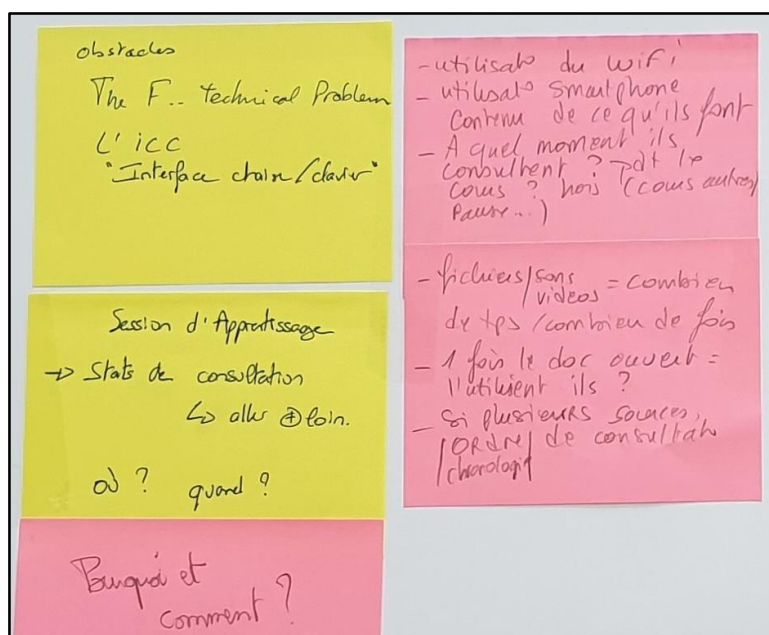 obstacles
The F.. technical Problem
L'icc
"Interface chaise/clavier"
Session d'Apprentissage
→ Stats de consultation
↳ aller ⊕ loin.
où ? quand ?
Pourquoi et
comment ?
- utilisato du wifi
- utilisato smartphone
contenu de ce qu'ils font
- A quel moment ils
consultent ? → dt le
cours ? hors (cours autres
Pause...)
- fichiers/sons
videos = combien
de tps / combien de fois
- 1 fois le doc ouvert =
l'utilisent ils ?
- Si plusieurs sources,
/ORDRE/ de consultato
/chronologie